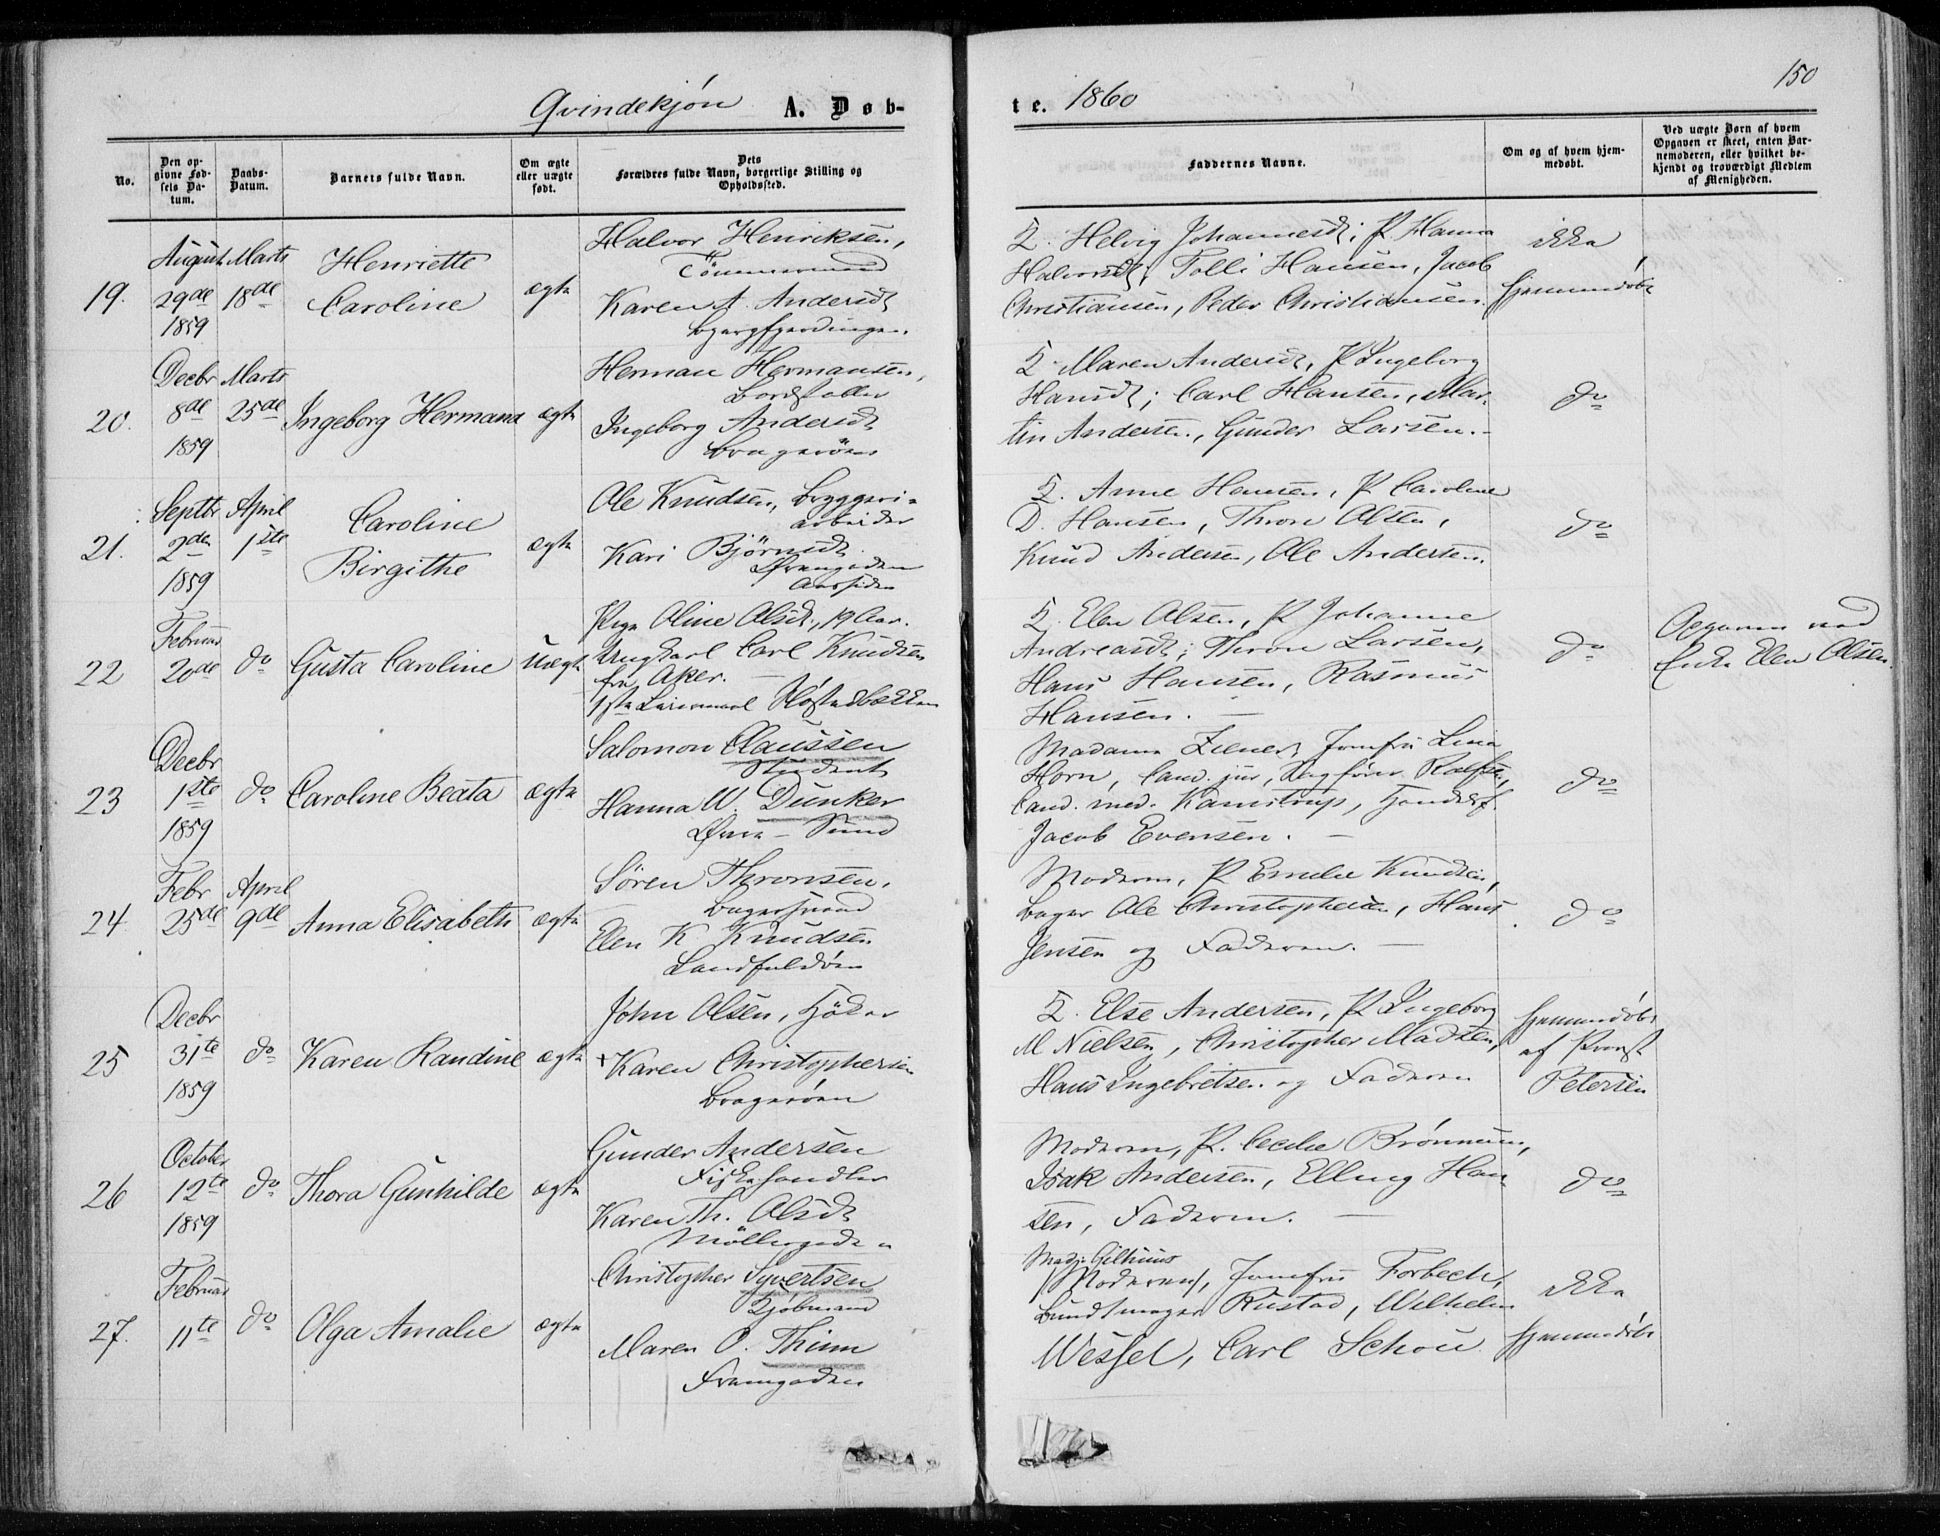 150
Qvindekjøn A. Døb-
te. 1860
No.
Den op-
givne Fød-
sels Da-
tum.
Daabs-
Datum.
Barnets fulde Navn.
Om ægte
eller uægte
født.
Dets
Forældres fulde Navn, borgerlige Stilling og
Opholdssted.
Faddernes Navne.
Om og af hvem hjem-
medøbt.
Ved uægte Børn af hvem
Opgaven er skeet, enten Bar-
nemoderen, eller hvilket be-
kjendt og troværdigt Medlem
af Menigheden.
19.
August
29de
1859
Marts
18de
Henriette
Caroline
ægte
Halvor Henriksen,
Tömmermand
Karen A. Andersdt
Helvig Johannesdt; P. Hanna
Halvorsdt; Tolli Hansen, Jacob
Christiansen, Peder Christiansen
ikke
hjemmedøbt
20.
Decbr
8de
1859
Marts
25de
Ingeborg Hermana
ægte
Herman Hermansen,
Ingeborg Andersdt
Brageröen
Maren Andersdt, P. Ingeborg
Hansdt; Carl Hansen, Mar-
tin Andersen, Gunder Larsen.
do
21.
Septbr
2den
1859
April
1ste
Caroline
Birgithe
ægte
Ole Knudsen, Bryggeri-
arbeider
Kari Björnsdt
Aassiden
Anne Hansen, P. Caroline
D. Hansen, Thron Olsen,
Knud Andersen, Ole Andersen.
do
22
Februar
20de
do
Gusta Caroline
Uægte
Pige Oline Olsdt, 19 Aar.
Ungkarl Carl Knudsen
fra Aker.
1ste Leiermaal
Elen Olsen, P. Johanne
Andreasdt; Thron Larsen,
Hans Hansen, Rasmus
Hansen.
do
Opgaven ved
Enke Elen Olsen.
23
Decbr
1ste
1859
do
Caroline Beata
ægte
Salomon Claussen
Student
Hanna W. Dunker
Øvre-Sund
Madame Ziener, Jomfru Lina
Horn, Cand. jur, Sagfører Rolfsen,
Cand. med. Kamstrup, Handelsf.
Jacob Evensen.
do
24
Febr
25de
April
9de
Anna Elisabeth
ægte
Sören Thronsen,
Bagersvend
Elen K Knudsen
Landfaldöen
Moderen, P. Emelie Knudsen,
Bager Ole Christophersen, Hans
Jensen og Faderen.
do
25
Decbr
31te
1859
do
Karen Randine
ægte
John Olsen, Höker
Karen Christophersen
Brageröen
Else Andersen, P. Ingeborg
M Nielsen, Christopher Madsen,
Hans Ingebretsen og Faderen
hjemmedøbt
af Provst
Petersen
26
October
12te
1859
do
Thora Gunhilde
ægte
Gunder Andersen
Fiskehandler
Karen Th. Olsdt
Möllergaden
Moderen, P. Cecilie Brönnum,
Isak Andersen, Elling Han-
sen, Faderen.
do
27.
Februar
11te
do
Olga Amalie
ægte
Christopher Syvertsen
Kjöbmand
Maren O. Thinn
Framgaden
Mad: Gilhuus
(Moderen), Jomfru Forbech,
Bundtmager Rustad, Wilhelm
Wessel, Carl Schou
ikke
hjemmedøbt